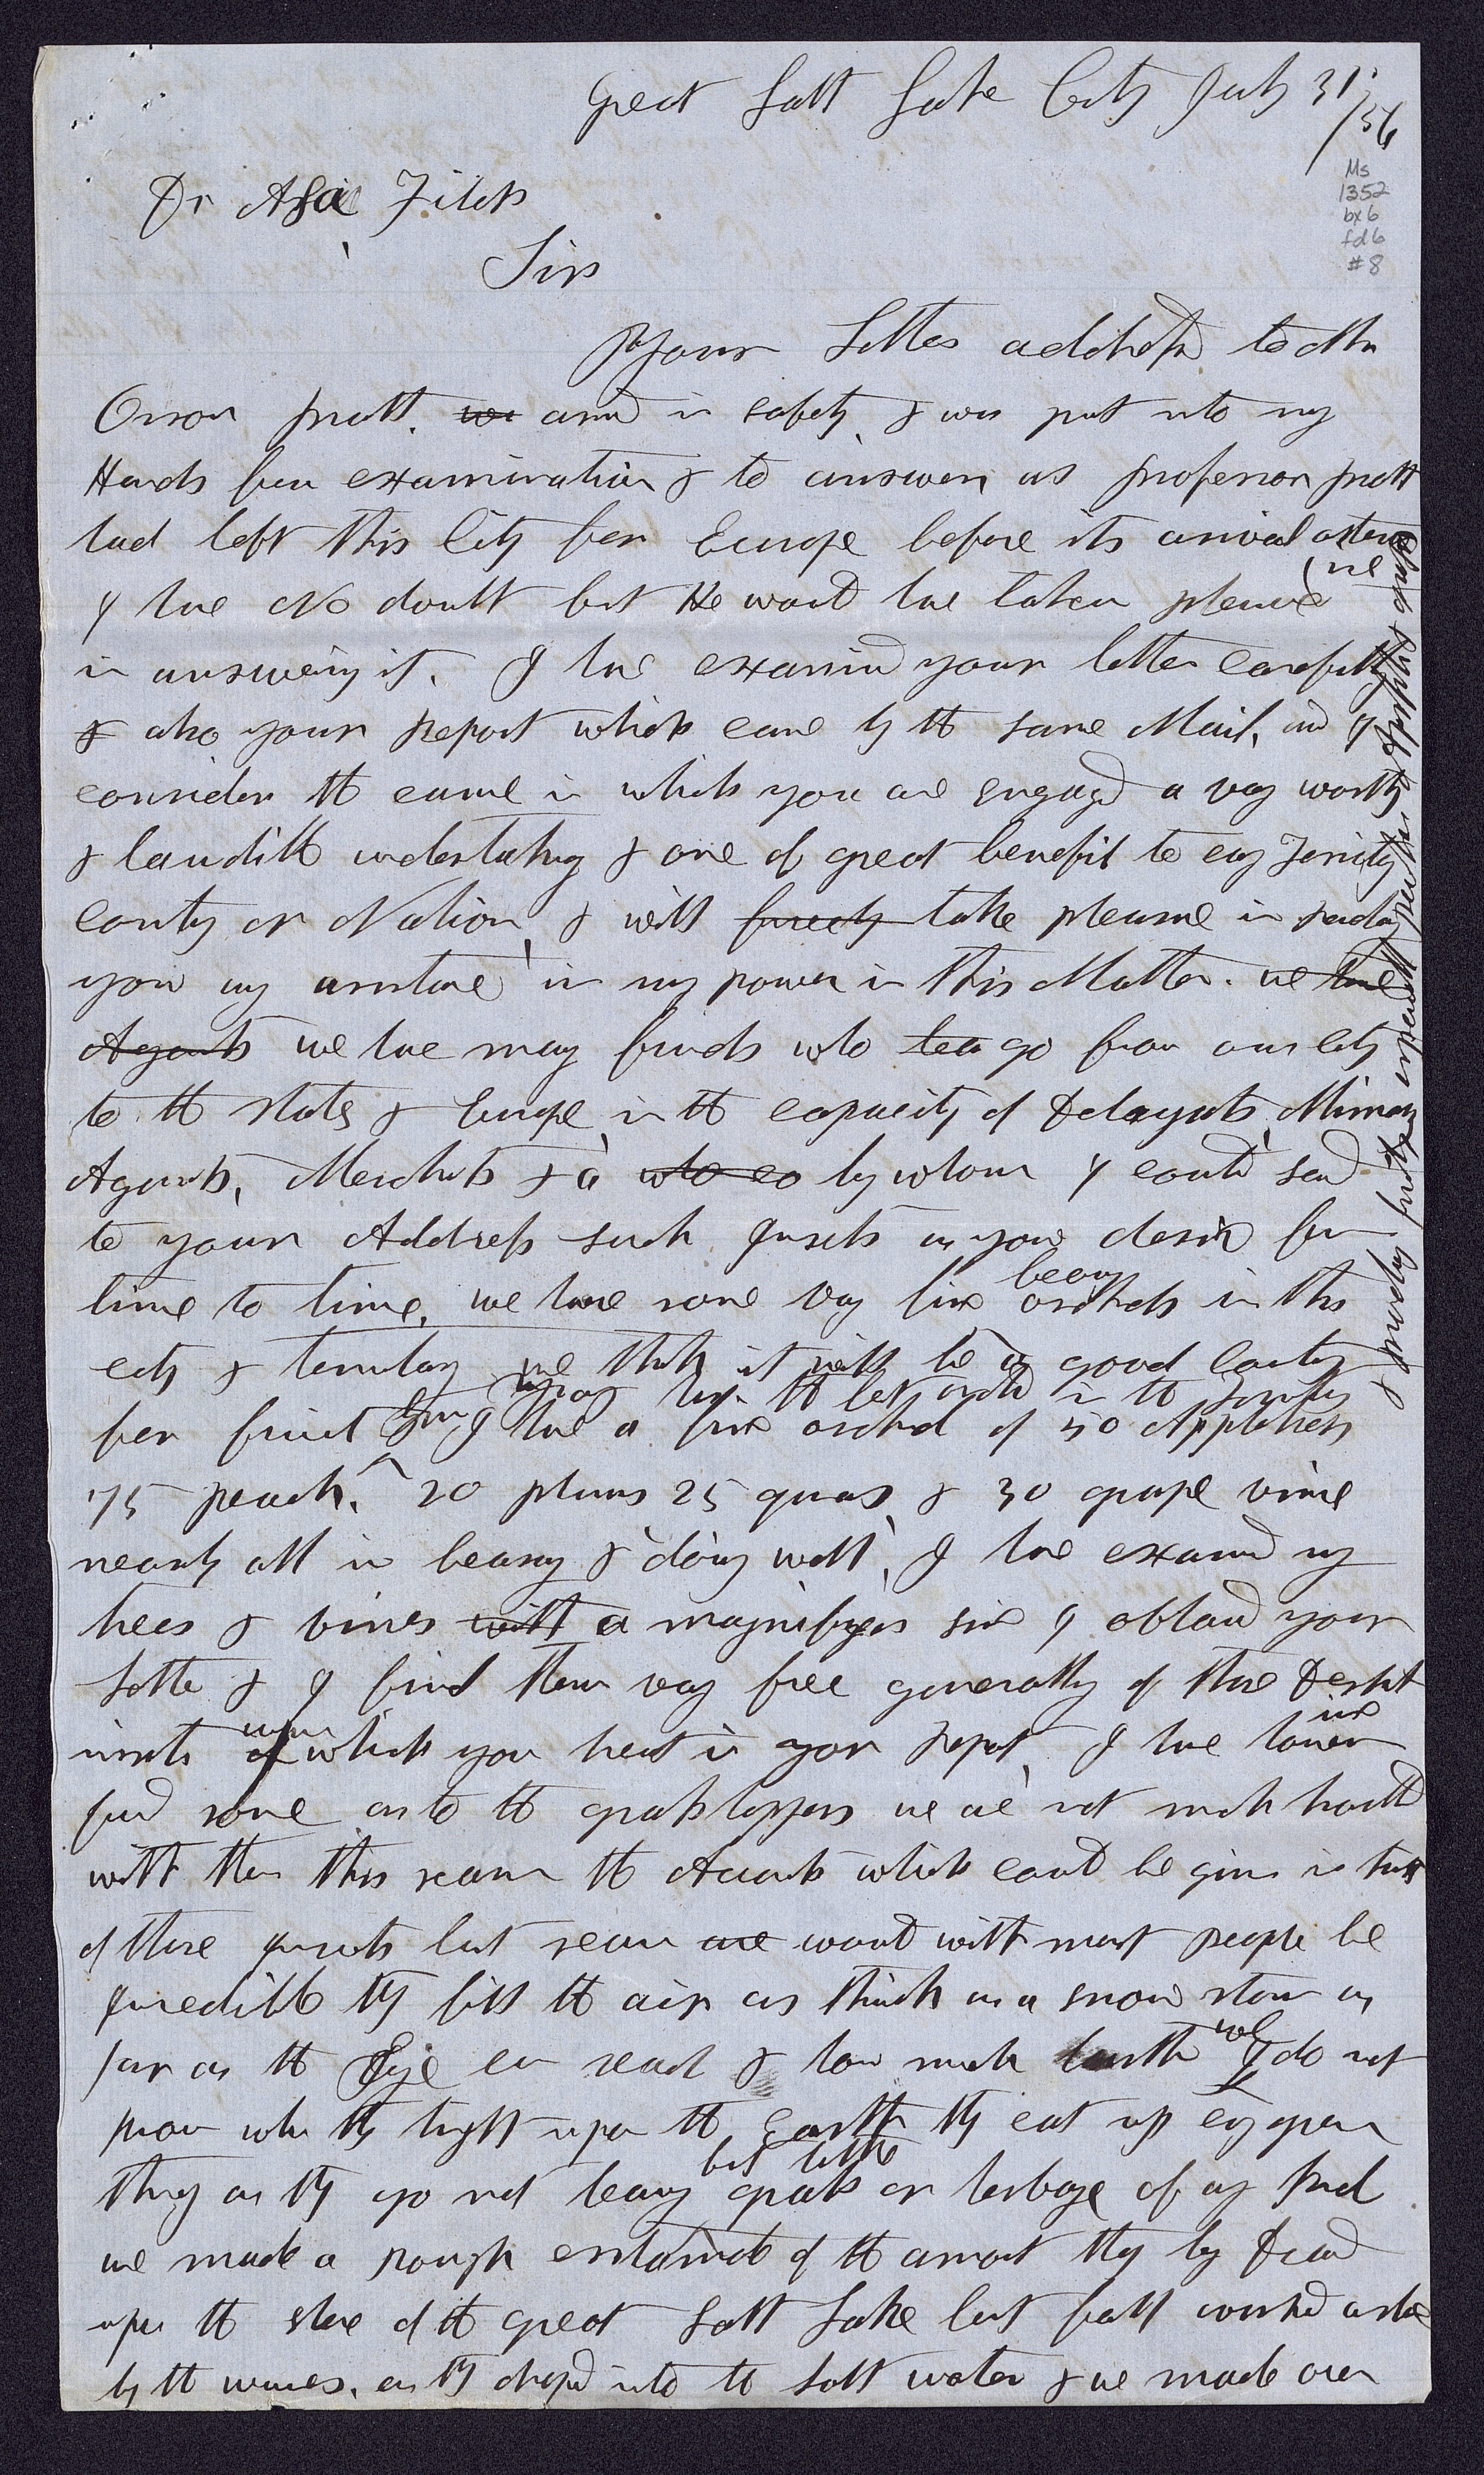 Great Salt Lake City July 31,
/56
Ms
1352
bx 6
fd 6
#8
Dr Asa Fitch
Sir
Your Letter addressd to Mr
Orson Pratt. we arivd in safety, & was put into my
Hands for examination & to answer, as Professor Pratt
had left this City for Europe before its arival
I have No doubt but He would have taken pleasure
in answering it. I have examind your letter carefully
& also your Report which came by the same Mail, and I
consider the cause in which you are engagd a very worthy
& laudible undertaking & one of great benefit to evry Territory
County or Nation, & will freely take pleasure in rendering
you any assistance in my power in this Matter. we have
Agents we have many friends who go from our City
to the States & Europe in the capacity of Delegats, Missionary
Agents, Merchts &c who go by whom I could send
to your Address such Insects as you desire from
time to time, we have some very fine bearing orchards in this
city & territory we think it will be a good Country
for fruit I have a fine orchard of 50 Appletrees
have the best orchd in the Territory
75 peach, 20 plums 25 & 30 grape vine
nearly all in bearing & doing well, I have examind my
trees & vines with a magnifyer since I obtaind your
Letter & I find them very free generally of those Destt
insects upon which you treat in your Report, I have however
fund some as to the grasshoppers we are not much troubld
with them this season the Accounts which could be givn in truth
of those Insects last season are would with most people be
Incredible they fill the air as thick as a snow storm as
far as the Eye can reach & how much farther we I do not
know when they light upon the Earth they eat up evry green
thing as they go not leaving but little grass or herbage of any kind
we made a rough estimate of the amount they lay dead
upon the shore of the great Salt Lake last fall washd ashore
by the waves, as they dropd into the Salt water & we made over